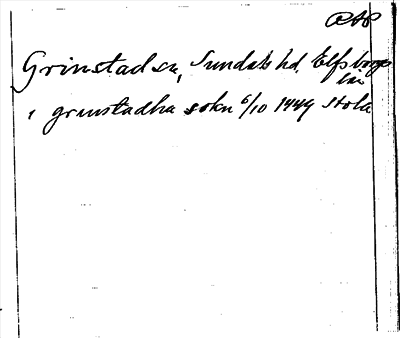 RAP
Grinstad sn, Sundals hd, Elfsborgs
län
i grinstadha sokn 6/10 1449 Stola